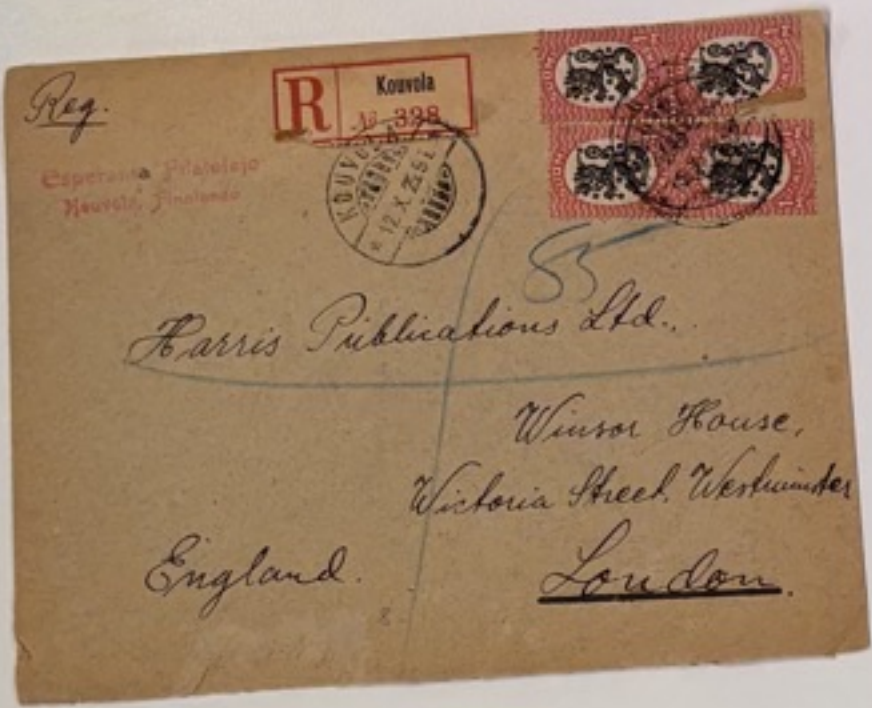 Reg.
R
Kouvola
№ 338
Esperanta Filatelejo
Kouvola, Finnlando
KOUVOLA
12.X.25
85
Harris Publications Ltd.,
Winsor House,
Wictoria Street, Westminster
England.
London.